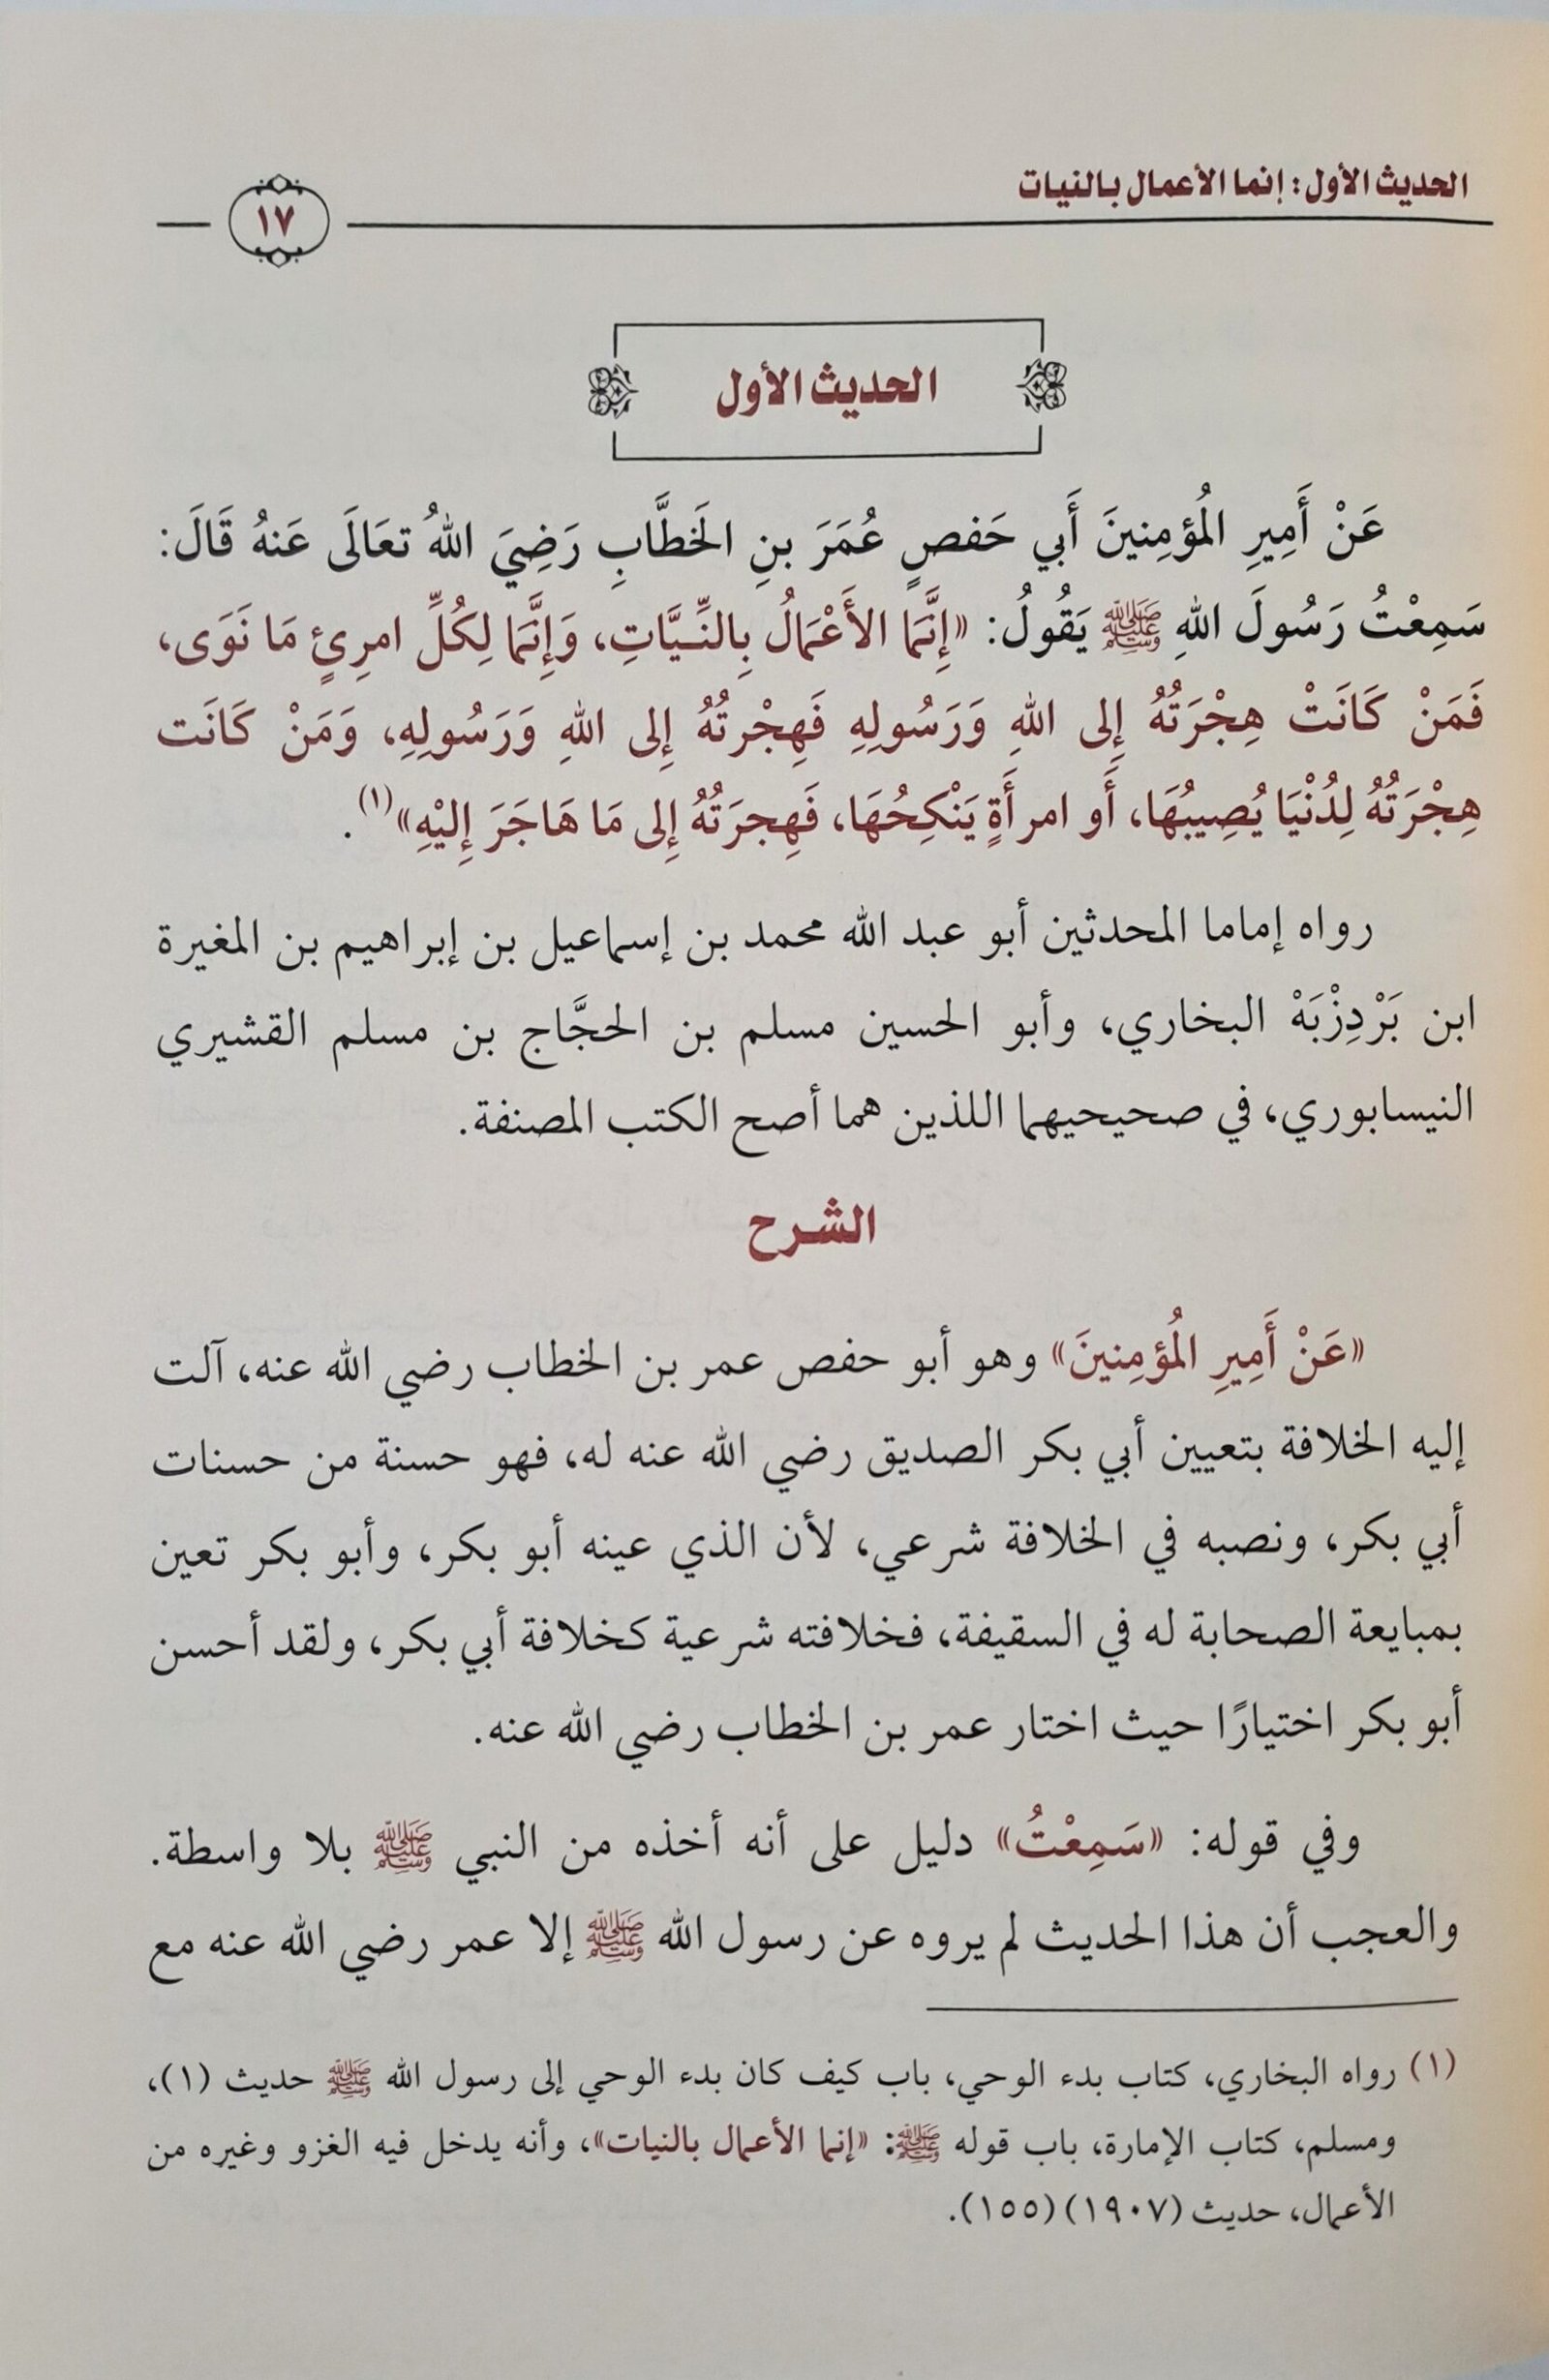 الحديث الأول: إنما الأعمال بالنيات
١٧
الحديث الأول
عَنْ أَمِيرِ المُؤمِنينَ أَبي حَفصٍ عُمَرَ بنِ الخَطَّابِ رَضِيَ اللهُ تعَالَى عَنهُ قَالَ:
سَمِعْتُ رَسُولَ اللهِ ﷺ يَقُولُ: «إِنَّمَا الأَعْمَالُ بِالنِّيَّاتِ، وَإِنَّمَا لِكُلِّ امرِئٍ مَا نَوَى،
فَمَنْ كَانَتْ هِجْرَتُهُ إِلى اللهِ وَرَسُولِهِ فَهِجْرتُهُ إِلى اللهِ وَرَسُولِهِ، وَمَنْ كَانَت
هِجْرَتُهُ لِدُنْيَا يُصِيبُهَا، أَو امرأَةٍ يَنْكِحُهَا، فَهِجرَتُهُ إِلى مَا هَاجَرَ إِليْهِ»(١).
رواه إماما المحدثين أبو عبد الله محمد بن إسماعيل بن إبراهيم بن المغيرة
ابن بَرْدِزْبَهْ البخاري، وأبو الحسين مسلم بن الحجَّاج بن مسلم القشيري
النيسابوري، في صحيحيهما اللذين هما أصح الكتب المصنفة.
الشرح
«عَنْ أَمِيرِ المُؤمِنينَ» وهو أبو حفص عمر بن الخطاب رضي الله عنه، آلت
إليه الخلافة بتعيين أبي بكر الصديق رضي الله عنه له، فهو حسنة من حسنات
أبي بكر، ونصبه في الخلافة شرعي، لأن الذي عينه أبو بكر، وأبو بكر تعين
بمبايعة الصحابة له في السقيفة، فخلافته شرعية كخلافة أبي بكر، ولقد أحسن
أبو بكر اختيارًا حيث اختار عمر بن الخطاب رضي الله عنه.
وفي قوله: «سَمِعْتُ» دليل على أنه أخذه من النبي ﷺ بلا واسطة.
والعجب أن هذا الحديث لم يروه عن رسول الله ﷺ إلا عمر رضي الله عنه مع
(١) رواه البخاري، كتاب بدء الوحي، باب كيف كان بدء الوحي إلى رسول الله ﷺ حديث (١)،
ومسلم، كتاب الإمارة، باب قوله ﷺ: «إنما الأعمال بالنيات»، وأنه يدخل فيه الغزو وغيره من
الأعمال، حديث (١٩٠٧) (١٥٥).